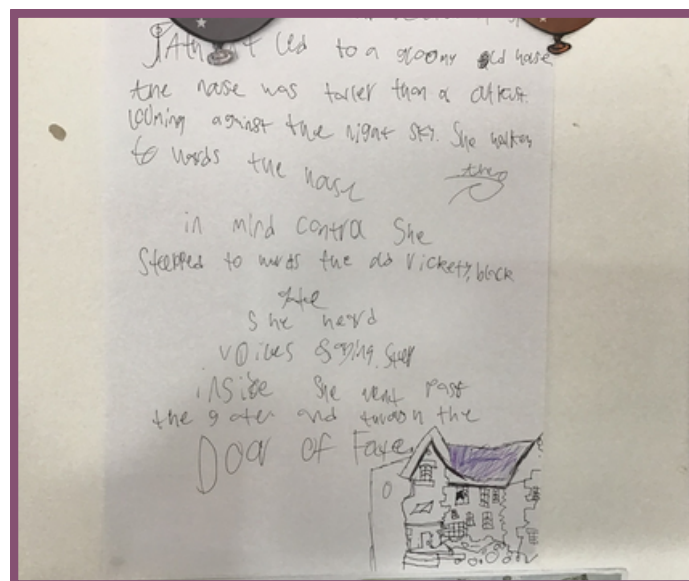 PAth t led to a gloomy old house
the house was taller than a
looming against the night sky. She walked
to wards the house
in mind control She
Stepped to wards the old rickety, black
gate
She heard
voices saying. Step
inside She went past
the gates and through the
Door of Fate.